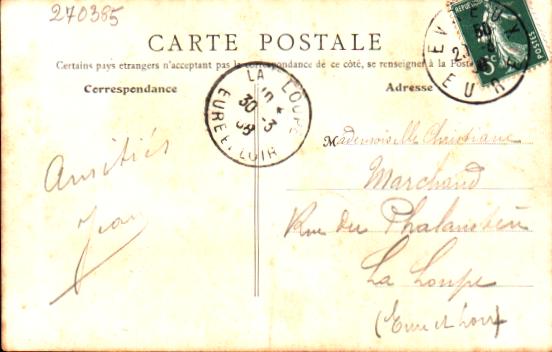 270385
CARTE POSTALE
Certains pays etrangers n'acceptant pas la correspondance de ce côté, se renseigner à la Poste
Correspondance
Adresse
LA LOUPE
30 -3
08
EURE-ET-LOIR
EVREUX
30
EURE
POSTES
5c
Amitiés
Jean
Mademoiselle Christiane
Marchand
Rue du Phalanstère
La Loupe
(Eure et Loir)